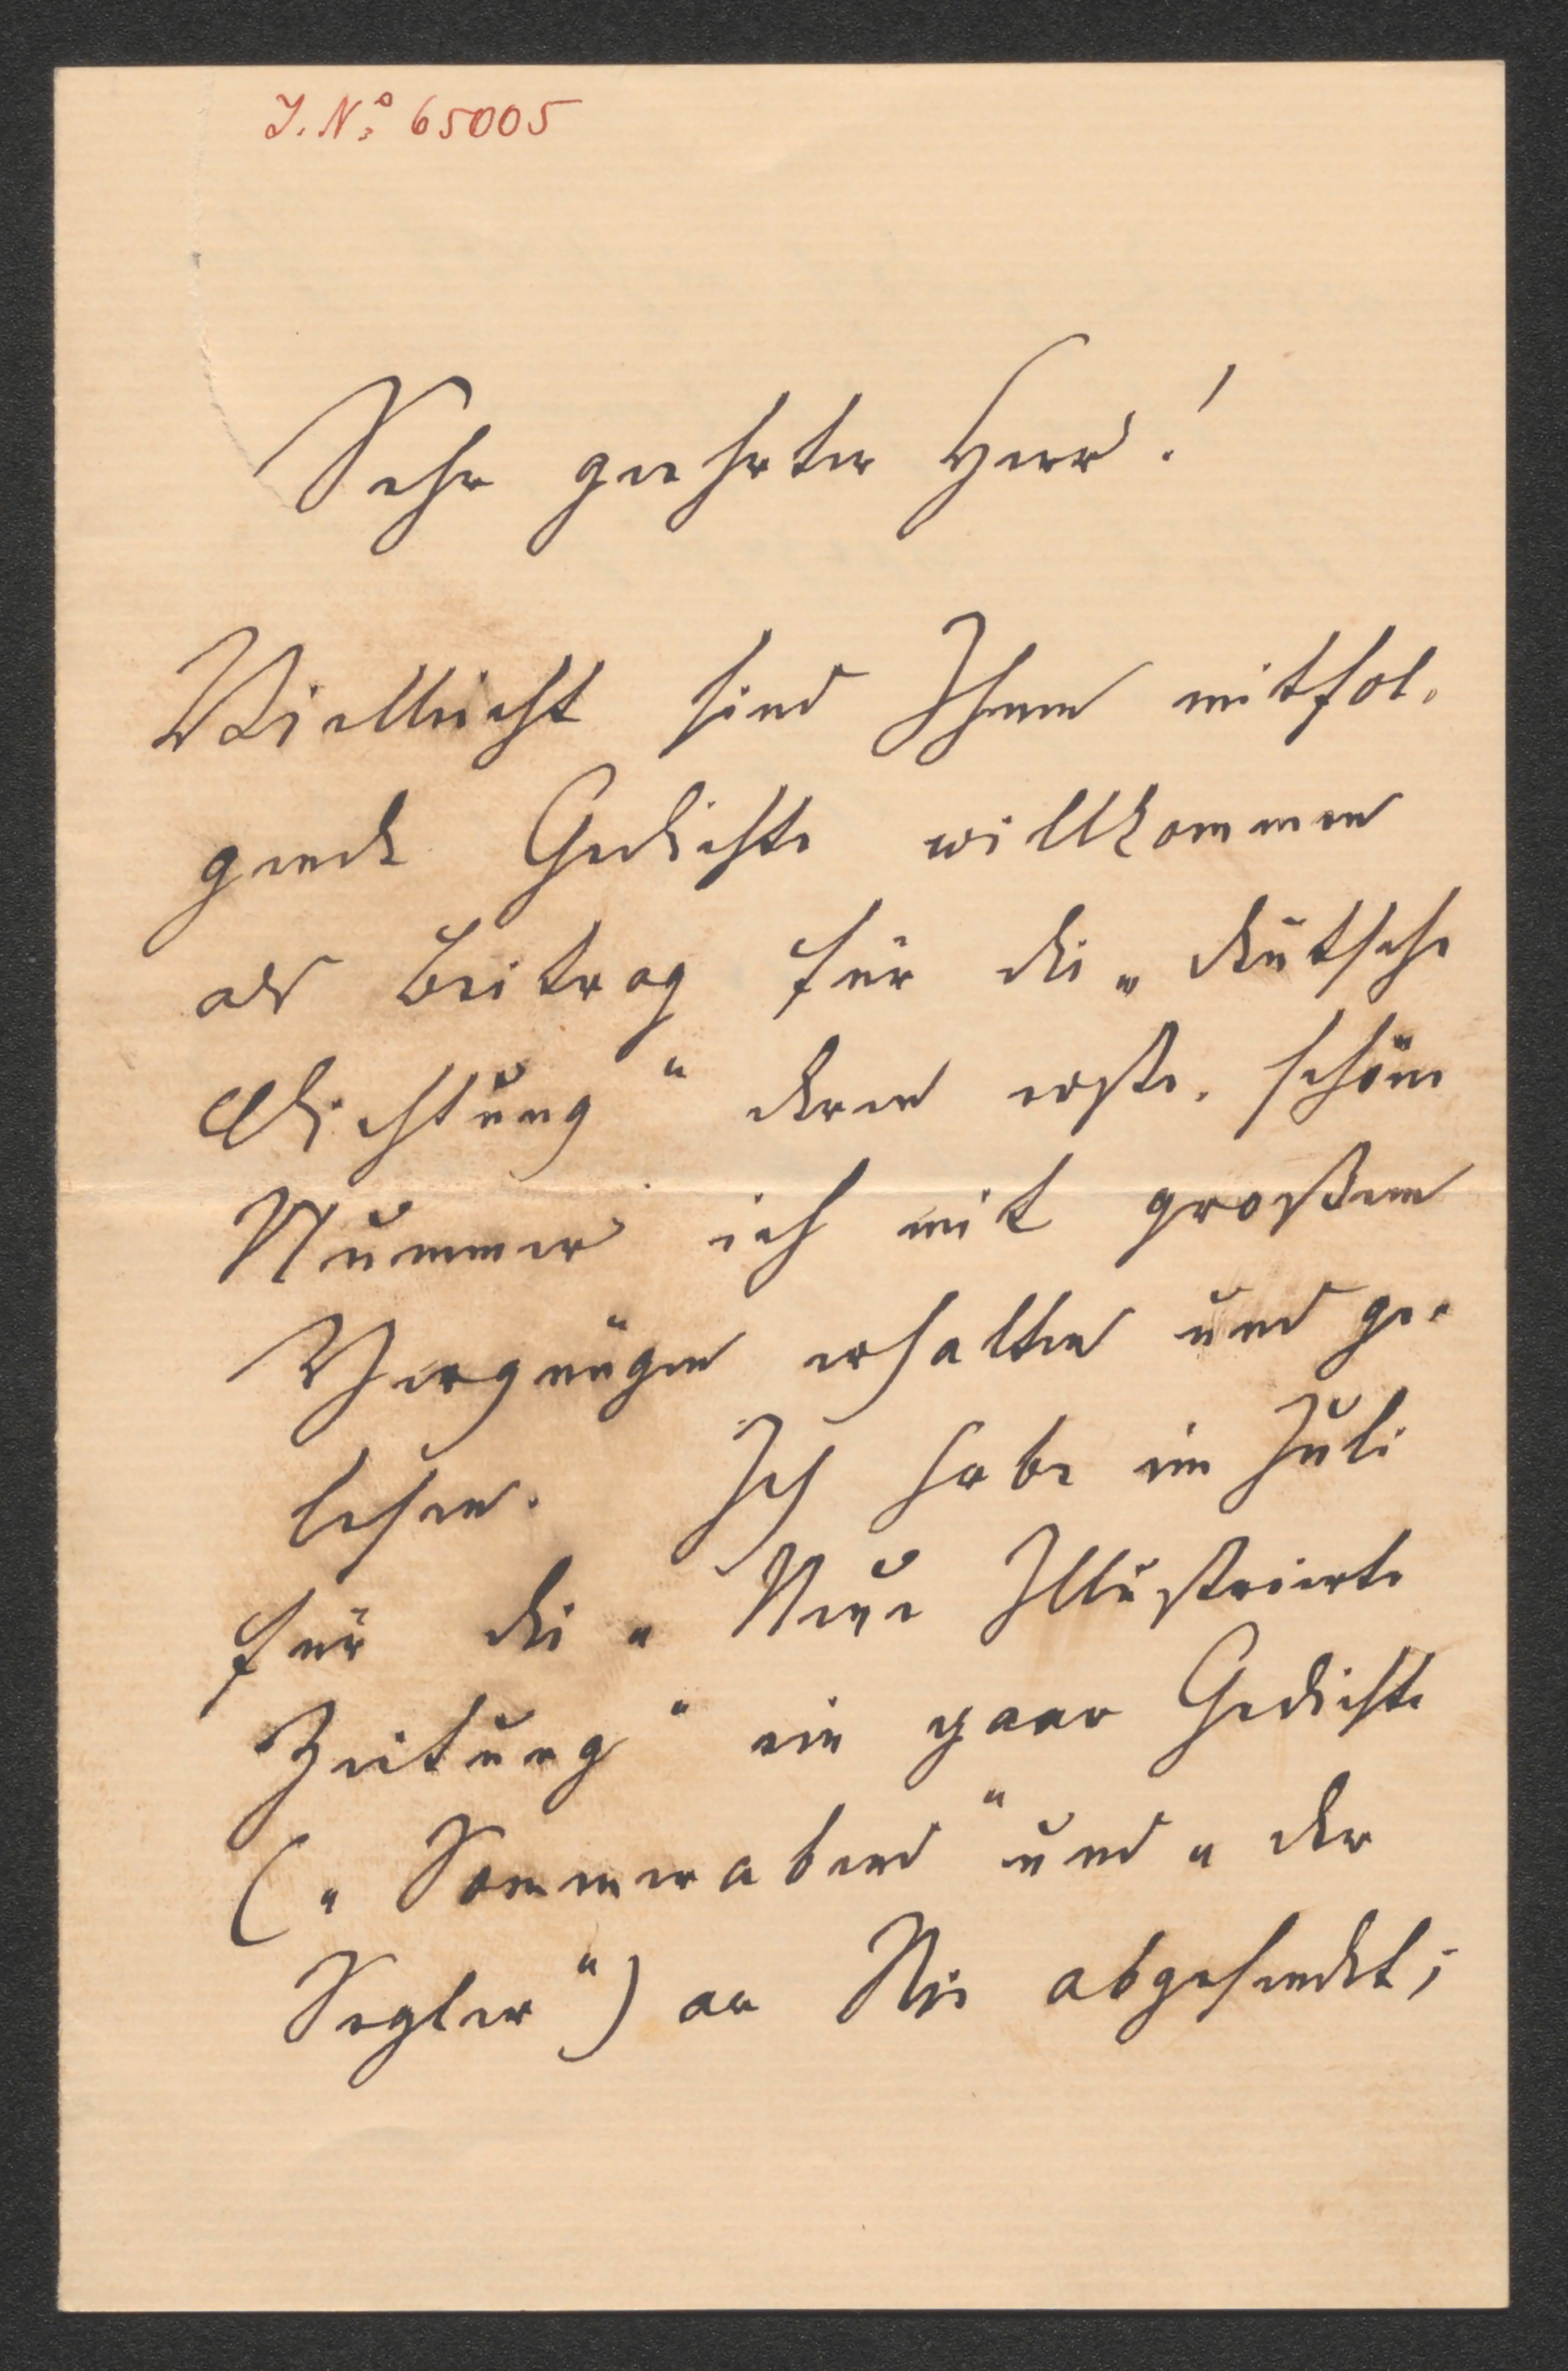 J. N.o 65005
Sehr geehrter Herr!
Vielleicht sind Ihnen mitfol-
gende Gedichte willkommen
als Beitrag für die „deutsche
Dichtung“ deren erste, schöne
Nummer ich mit großem
Vergnügen erhalten und ge-
lesen. Ich habe im Juli
für die „Neue Illustrierte
Zeitung“ ein paar Gedichte
(„Sommerabend“ und „der
Segler“) an Sie abgesendet;